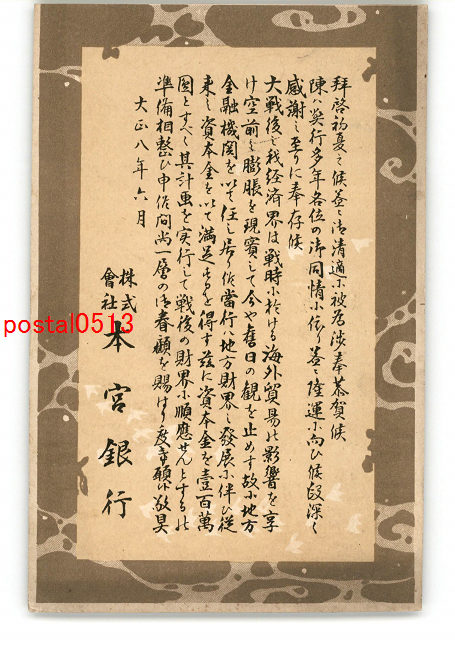 拝啓初夏之候益々御清適に被為渉奉恭賀候
陳は弊行多年各位の御同情に依り益々隆運に向ひ候段深く
感謝之至りに奉存候
大戦後之我経済界は戦時に於ける海外貿易の影響を享
け空前之膨脹を現実して今や旧日の観を止めす故に地方
金融機関を以て任し居り候当行は地方財界之発展に伴ひ従
来之資本金を以て満足するを得す茲に資本金を壹百萬
圓とすべく其計画を実行して戦後の財界に順應せんとするの
準備相整ひ申候間尚一層の御眷顧を賜はり度奉願候敬具
大正八年六月
株式會社 本宮銀行
postal0513